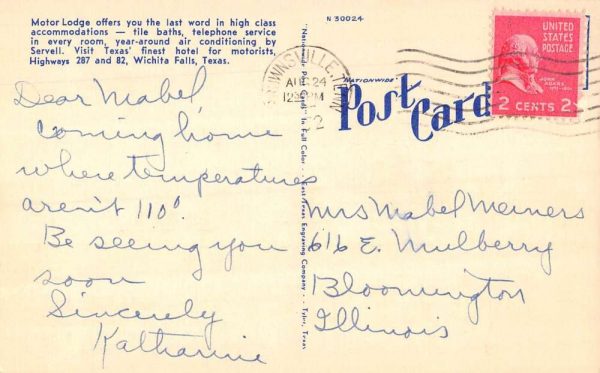 Motor Lodge offers you the last word in high class
accommodations — tile baths, telephone service
in every room, year-around air conditioning by
Servell. Visit Texas' finest hotel for motorists,
Highways 287 and 82, Wichita Falls, Texas.
N 30024
AUG 24
PM
UNITED
STATES
POSTAGE
JOHN
ADAMS
2 CENTS 2
"NATIONWIDE"
Post Card
Dear Mabel,
Coming home
where temperatures
aren't 110°.
Be seeing you
soon
Sincerely
Katharine
Nationwide Post Card - In Full Color - East Texas Engraving Company - Tyler, Texas
Mrs Mabel Meiners
616 E. Mulberry
Bloomington
Illinois